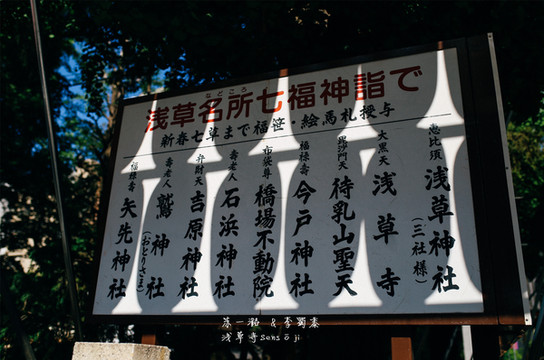 浅草名所七福神詣で
などころ
新春七草まで福笹・絵馬札授与
恵比須 浅草神社(三社様)
大黒天 浅草寺
毘沙門天 待乳山聖天
福禄壽 今戸神社
布袋尊 橋場不動院
壽老人 石浜神社
弁財天 吉原神社
壽老人 鷲神社(おとりさま)
福禄壽 矢先神社
浅草寺sensōji